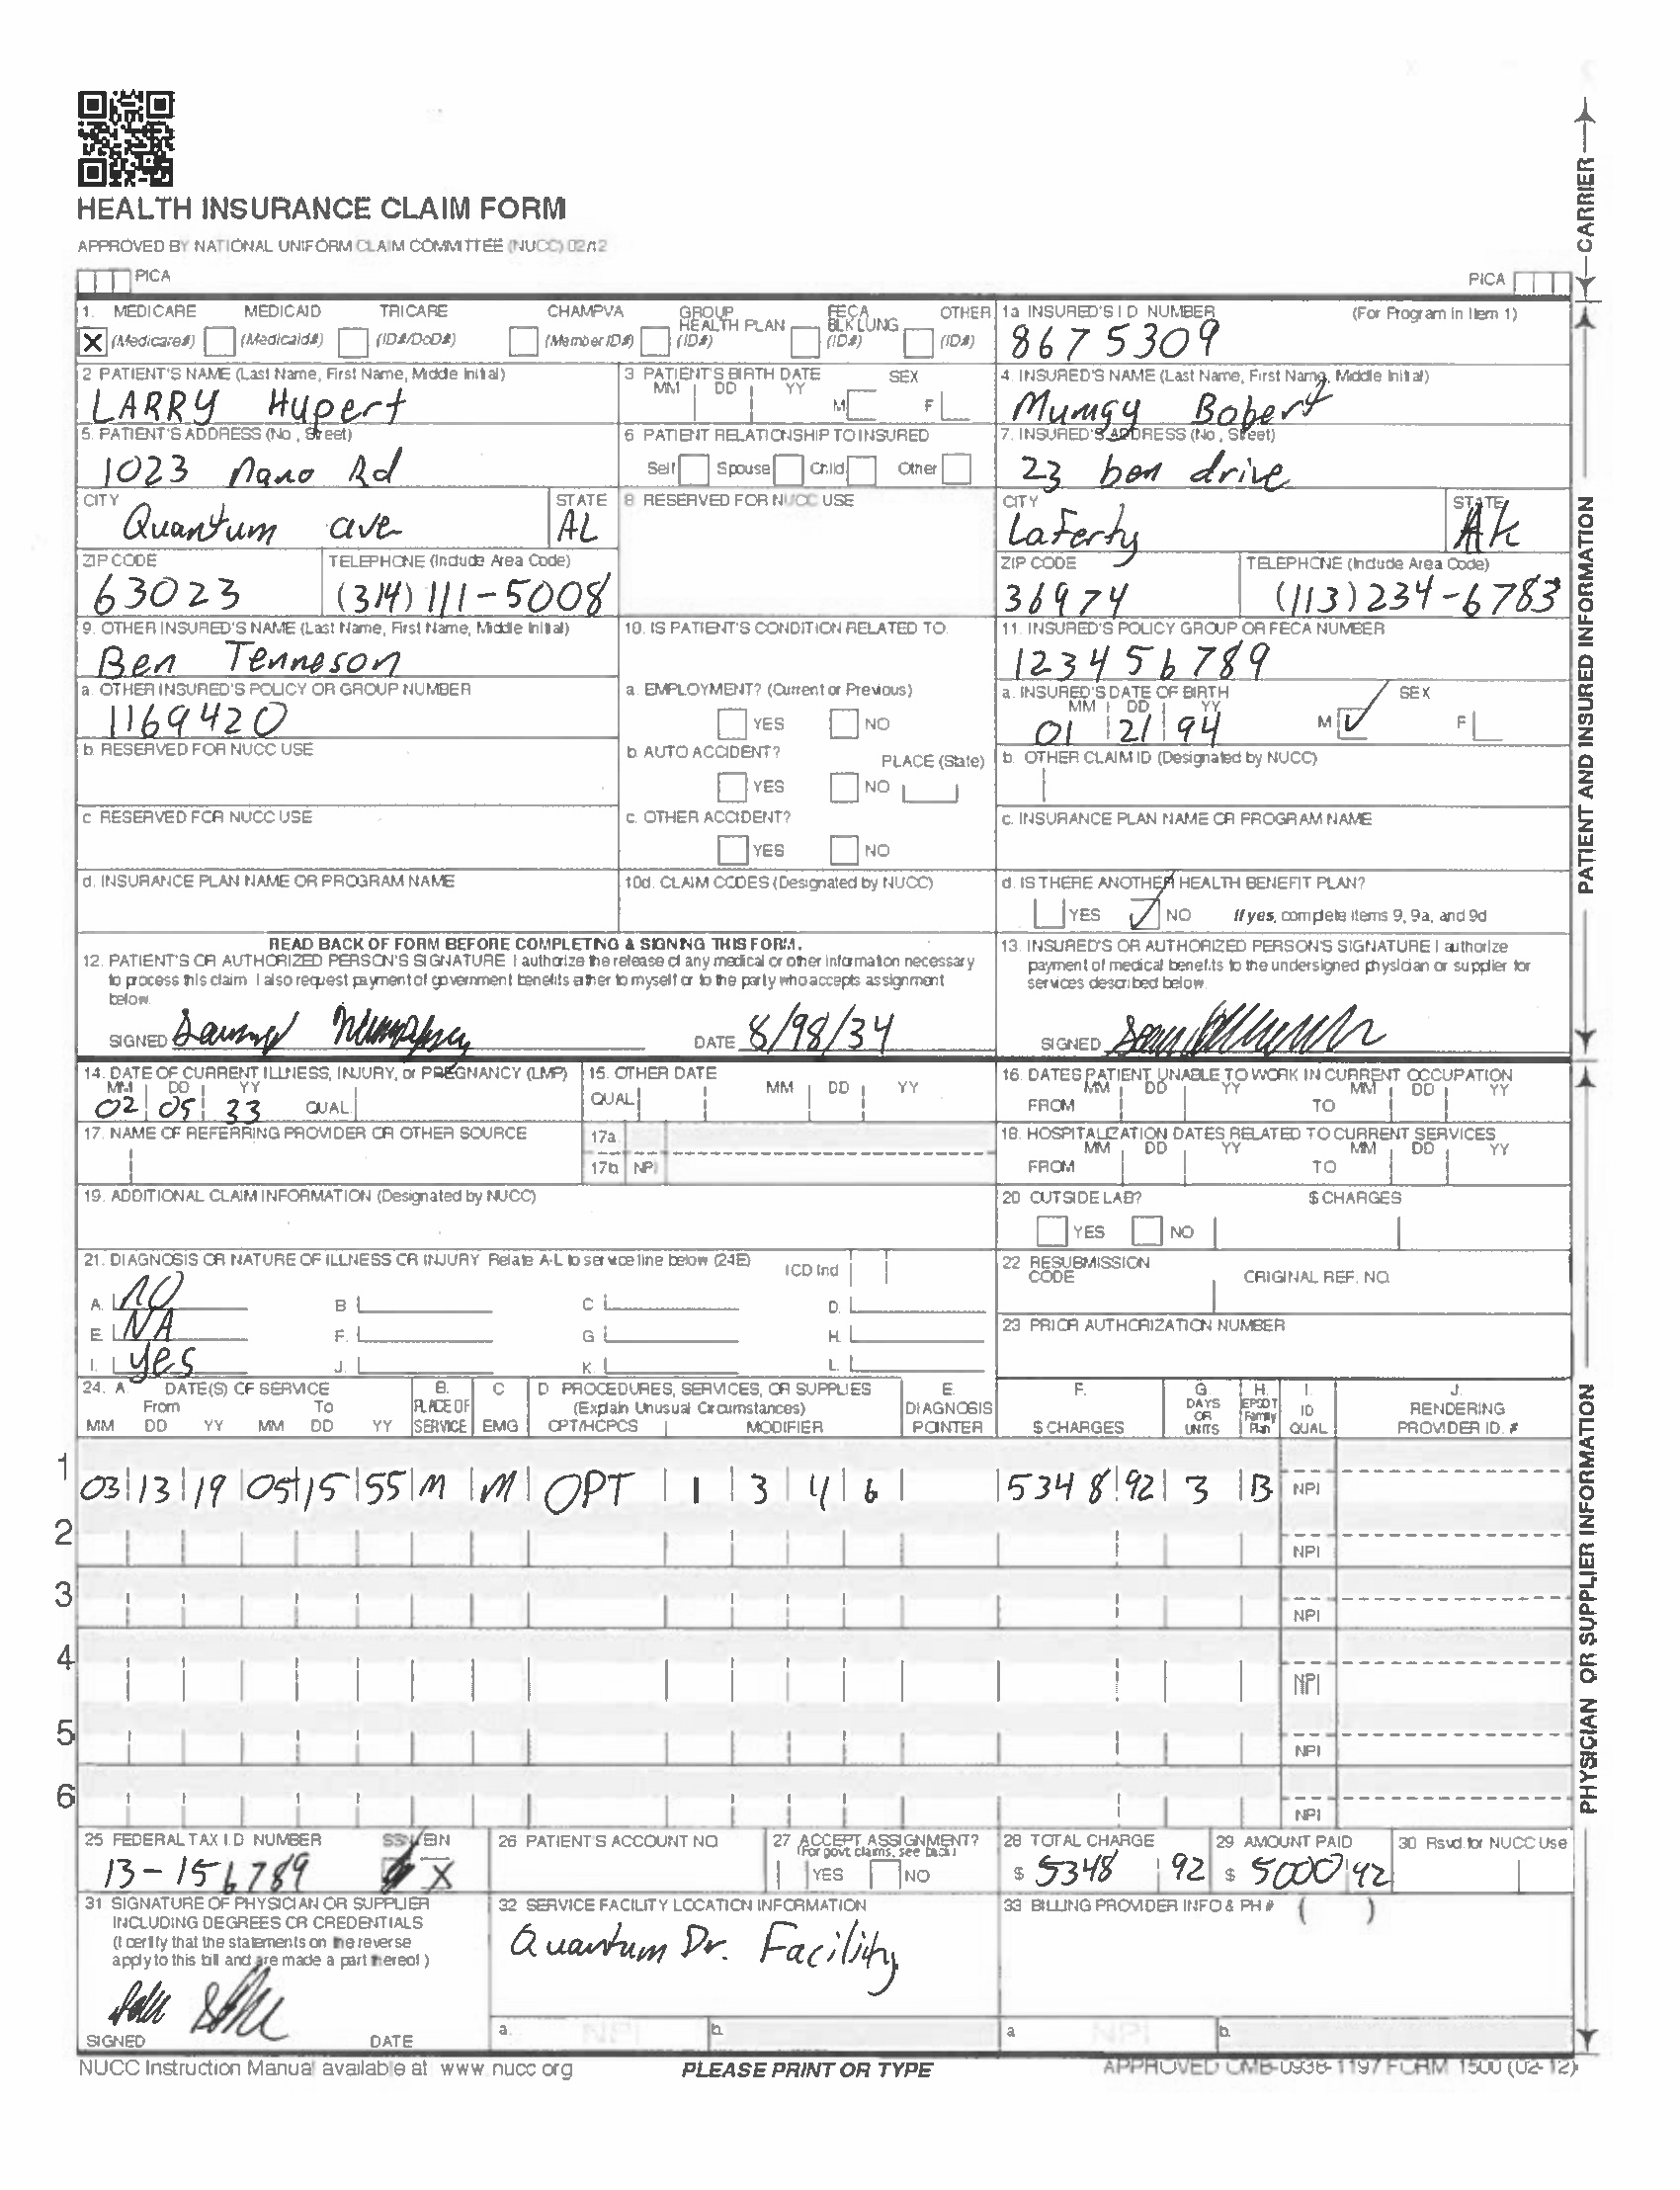 HEALTH INSURANCE CLAIM FORM
APPROVED BY NATIONAL UNIFORM CLAIM COMMITTEE (NUCC) 02/12
PICA
PICA
CARRIER
1. MEDICARE MEDICAID TRICARE CHAMPVA GROUP HEALTH PLAN FECA BLK LUNG OTHER
X (Medicare#) (Medicaid#) (ID#/DoD#) (Member ID#) (ID#) (ID#) (ID#)
1a INSURED'S I D NUMBER (For Program in Item 1)
8675309
2 PATIENT'S NAME (Last Name, First Name, Middle Initial)
LARRY Hupert
3 PATIENT'S BIRTH DATE SEX
MM DD YY M F
4. INSURED'S NAME (Last Name, First Name, Middle Initial)
Mumgy Bobert
5. PATIENT'S ADDRESS (No, Street)
1023 nano Rd
6 PATIENT RELATIONSHIP TO INSURED
Self Spouse Child Other
7. INSURED'S ADDRESS (No, Street)
23 ben drive
CITY STATE
Quantum ave AL
8 RESERVED FOR NUCC USE
CITY STATE
Laferty AK
ZIP CODE TELEPHONE (Include Area Code)
63023 (314) 111-5008
ZIP CODE TELEPHONE (Include Area Code)
36974 (113) 234-6783
9. OTHER INSURED'S NAME (Last Name, First Name, Middle Initial)
Ben Tenneson
10. IS PATIENT'S CONDITION RELATED TO
11. INSURED'S POLICY GROUP OR FECA NUMBER
123456789
a. OTHER INSURED'S POLICY OR GROUP NUMBER
1169420
a. EMPLOYMENT? (Current or Previous)
YES NO
a. INSURED'S DATE OF BIRTH SEX
MM DD YY
01 21 94 M ✓ F
b. RESERVED FOR NUCC USE
b AUTO ACCIDENT? PLACE (State)
YES NO
b. OTHER CLAIM ID (Designated by NUCC)
c RESERVED FOR NUCC USE
c. OTHER ACCIDENT?
YES NO
c. INSURANCE PLAN NAME OR PROGRAM NAME
d. INSURANCE PLAN NAME OR PROGRAM NAME
10d. CLAIM CODES (Designated by NUCC)
d. IS THERE ANOTHER HEALTH BENEFIT PLAN?
YES ✓ NO If yes, complete items 9, 9a, and 9d
PATIENT AND INSURED INFORMATION
READ BACK OF FORM BEFORE COMPLETING & SIGNING THIS FORM.
12. PATIENT'S OR AUTHORIZED PERSON'S SIGNATURE I authorize the release of any medical or other information necessary
to process this claim I also request payment of government benefits either to myself or to the party who accepts assignment
below.
SIGNED DATE 8/98/34
13. INSURED'S OR AUTHORIZED PERSON'S SIGNATURE I authorize
payment of medical benefits to the undersigned physician or supplier for
services described below.
SIGNED
14. DATE OF CURRENT ILLNESS, INJURY, or PREGNANCY (LMP)
MM DD YY
02 05 33 QUAL
15. OTHER DATE
QUAL MM DD YY
16. DATES PATIENT UNABLE TO WORK IN CURRENT OCCUPATION
MM DD YY MM DD YY
FROM TO
17. NAME OF REFERRING PROVIDER OR OTHER SOURCE
17a
17b NPI
18. HOSPITALIZATION DATES RELATED TO CURRENT SERVICES
MM DD YY MM DD YY
FROM TO
19. ADDITIONAL CLAIM INFORMATION (Designated by NUCC)
20 OUTSIDE LAB? $ CHARGES
YES NO
21. DIAGNOSIS OR NATURE OF ILLNESS OR INJURY Relate A-L to service line below (24E) ICD Ind
A. NO B C D.
E NA F. G H.
I. yes J. K. L.
22 RESUBMISSION
CODE ORIGINAL REF. NO.
23 PRIOR AUTHORIZATION NUMBER
24. A. DATE(S) OF SERVICE B. C D PROCEDURES, SERVICES, OR SUPPLIES E. F. G. H. I. J.
From To PLACE OF (Explain Unusual Circumstances) DIAGNOSIS DAYS OR UNITS EPSDT Family Plan ID RENDERING
MM DD YY MM DD YY SERVICE EMG CPT/HCPCS MODIFIER POINTER $ CHARGES QUAL PROVIDER ID. #
1
03 13 19 05 15 55 M M OPT 1 3 4 6 5348 92 3 B NPI
2
NPI
3
NPI
4
NPI
5
NPI
6
NPI
25 FEDERAL TAX I.D NUMBER SSN EIN
13-156789 X
26 PATIENT'S ACCOUNT NO
27 ACCEPT ASSIGNMENT?
(For govt. claims, see back)
YES NO
28 TOTAL CHARGE
$ 5348 92
29 AMOUNT PAID
$ 5000 92
30 Rsvd for NUCC Use
31 SIGNATURE OF PHYSICIAN OR SUPPLIER
INCLUDING DEGREES OR CREDENTIALS
(I certify that the statements on the reverse
apply to this bill and are made a part thereof)
SIGNED DATE
32 SERVICE FACILITY LOCATION INFORMATION
Quantum Dr. Facility
a. NPI b.
33 BILLING PROVIDER INFO & PH # ( )
a NPI b.
PHYSICIAN OR SUPPLIER INFORMATION
NUCC Instruction Manual available at www.nucc.org
PLEASE PRINT OR TYPE
APPROVED OMB-0938-1197 FORM 1500 (02-12)